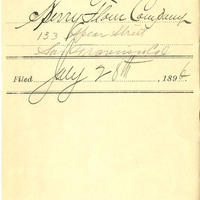 Sperry Flour Company
133 Spear Street
San Francisco Cal
Filed July 28th, 1896